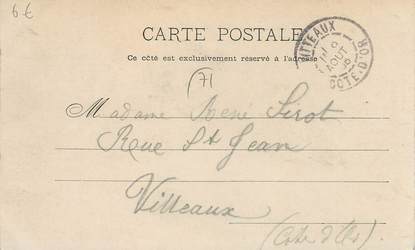 6€
CARTE POSTALE
VITTEAUX
CÔTE-D'OR
AOUT
Ce côté est exclusivement réservé à l'adresse
(71
Madame René Sirot
Rue St Jean
Vitteaux
(Côte d'Or)